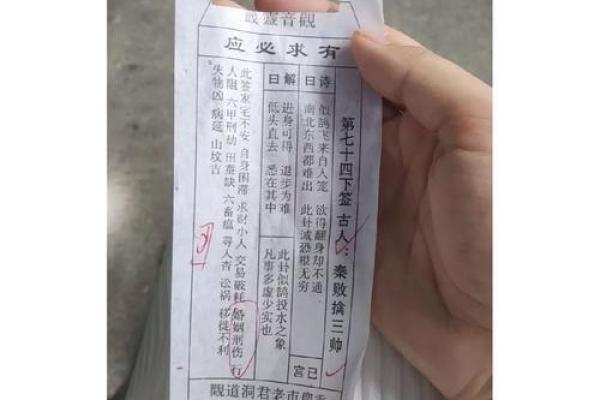 觀音靈籤
有求必应
第七十四下签 古人：秦败擒三帅
巳宫
诗曰
似鹄飞来自入笼 欲得翻身却不通
南北东西都难出 此卦诚恐根无穷
解曰
进身可得 退步为难 此卦似鹄投水之象
低头直去 悉在其中 凡事多虚少实也
此签家宅不安 自身困滞 求财小人 交易破耗 婚姻刑伤 行
人阻 六甲刑劫 田蚕缺 六畜瘟 寻人杳 讼祸 移徙不利
失物凶 病延 山坟吉
市老君洞道觀